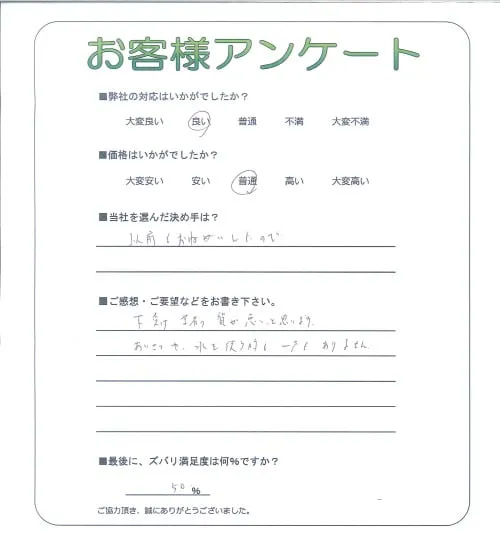 お客様アンケート
■弊社の対応はいかがでしたか？
大変良い 良い 普通 不満 大変不満
■価格はいかがでしたか？
大変安い 安い 普通 高い 大変高い
■当社を選んだ決め手は？
以前もおねがいしたので
■ご感想・ご要望などをお書き下さい。
下請け 業者の 質が悪いと思います。
あいさつや、水を使う時も 一声も ありません
■最後に、ズバリ満足度は何％ですか？
50 %
ご協力頂き、誠にありがとうございました。